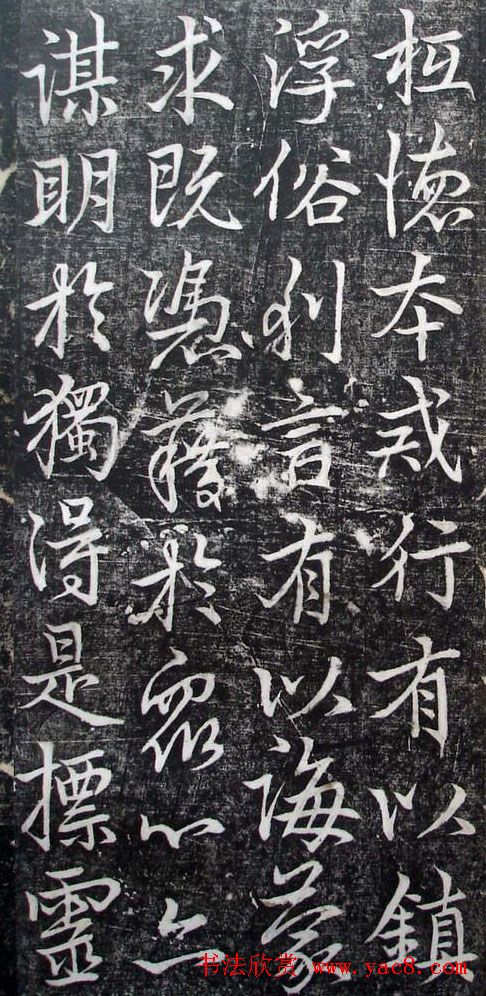 德本戒行有以鎮
浮俗利言有以誨蒙
求既憑藉於眾心亦
謀明於獨得是標靈
书法欣赏 www.yac8.com